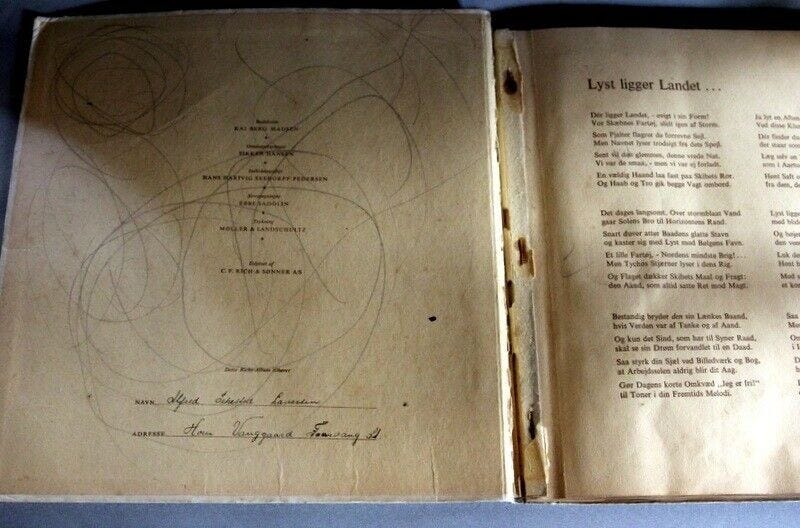 Redaktion:
KAJ BERG MADSEN
SIKKER HANSEN
HANS HARTVIG SEEDORFF PEDERSEN
EBBE SADOLIN
Trykning
MØLLER & LANDSCHULTZ
Udgivet af
C. F. RICH & SØNNER A/S
Dette Richs-Album tilhører
NAVN Alfred
ADRESSE Horn Vanggaard Faarvang St
Lyst ligger Landet . . .
Dér ligger Landet, - evigt i sin Form!
Vor Skæbnes Fartøj, slidt igen af Storm.
Som Pjalter flagrer de forrevne Sejl.
Men Navnet lyser trodsigt fra dets Spejl.
Sent vil det glemmes, denne vrede Nat.
Vi var de smaa, - men vi var ej forladt.
En vældig Haand laa fast paa Skibets Ror.
Og Haab og Tro gik begge Vagt ombord.
Det dages langsomt. Over stormblaat Vand
gaar Solens Bro til Horisontens Rand.
Snart duver atter Baadens glatte Stavn
og kaster sig med Lyst mod Bølgens Favn.
Et lille Fartøj, - Nordens mindste Brig! . . .
Men Tychos Stjerner lyser i dens Rig.
Og Flaget dækker Skibets Maal og Fragt:
den Aand, som altid satte Ret mod Magt.
Bestandig bryder den sin Lænkes Baand,
hvis Verden var af Tanke og af Aand.
Og kun det Sind, som har til Syner Raad,
skal se sin Drøm forvandlet til en Daad.
Saa styrk din Sjæl ved Billedværk og Bog,
at Arbejdsselen aldrig blir dit Aag.
Gør Dagens korte Omkvæd „Jeg er fri!"
til Toner i din Fremtids Melodi.
Ja lyt en
Ved disse
Dér finder du
der staar som
Læg selv en
som i
Hent Saft
fra dem,
Lyst ligger
med
Og
den
Luk
Hent
Med
at
Saa